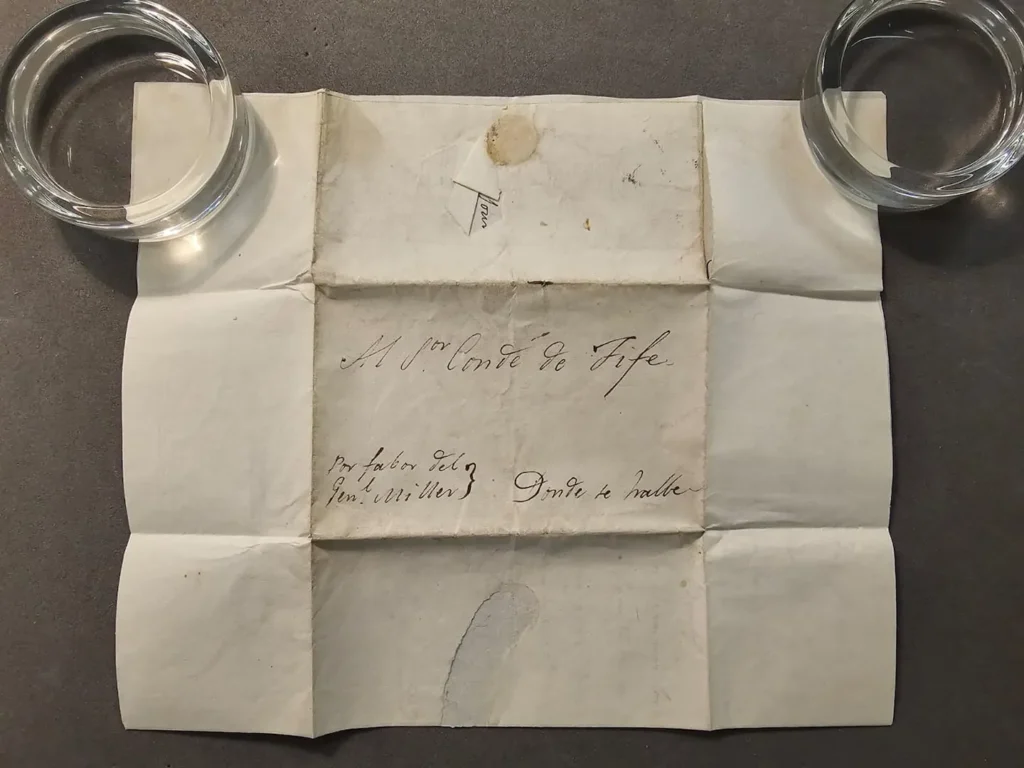 Al S.or Conde de Fife
Por fabor del
Gen.l Miller }
Donde se halle